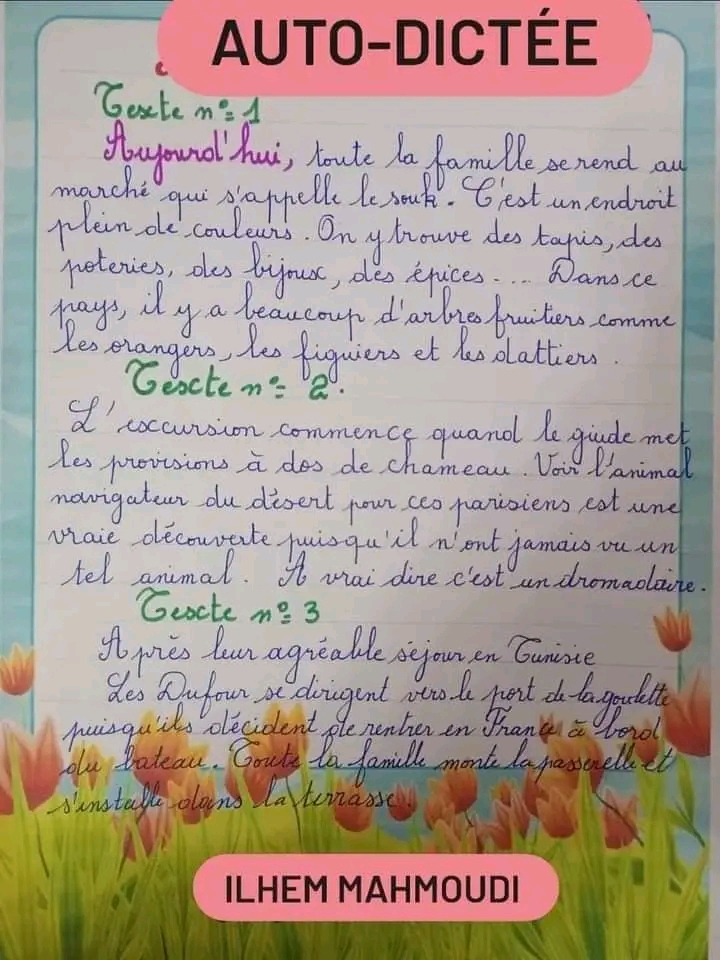 AUTO-DICTÉE
Texte n° 1
Aujourd'hui, toute la famille se rend au
marché qui s'appelle le souk. C'est un endroit
plein de couleurs. On y trouve des tapis, des
poteries, des bijoux, des épices.... Dans ce
pays, il y a beaucoup d'arbres fruitiers comme
les orangers, les figuiers et les dattiers.
Texte n° 2.
L'excursion commence quand le giude met
les provisions à dos de chameau. Voir l'animal
navigateur du désert pour ces parisiens est une
vraie découverte puisqu'il n'ont jamais vu un
tel animal. A vrai dire c'est un dromadaire.
Texte n° 3
Après leur agréable séjour en Tunisie
Les Dufour se dirigent vers le port de la goulette
puisqu'ils décident de rentrer en France à bord
du bateau. Toute la famille monte la passerelle et
s'installe dans la terrasse.
ILHEM MAHMOUDI